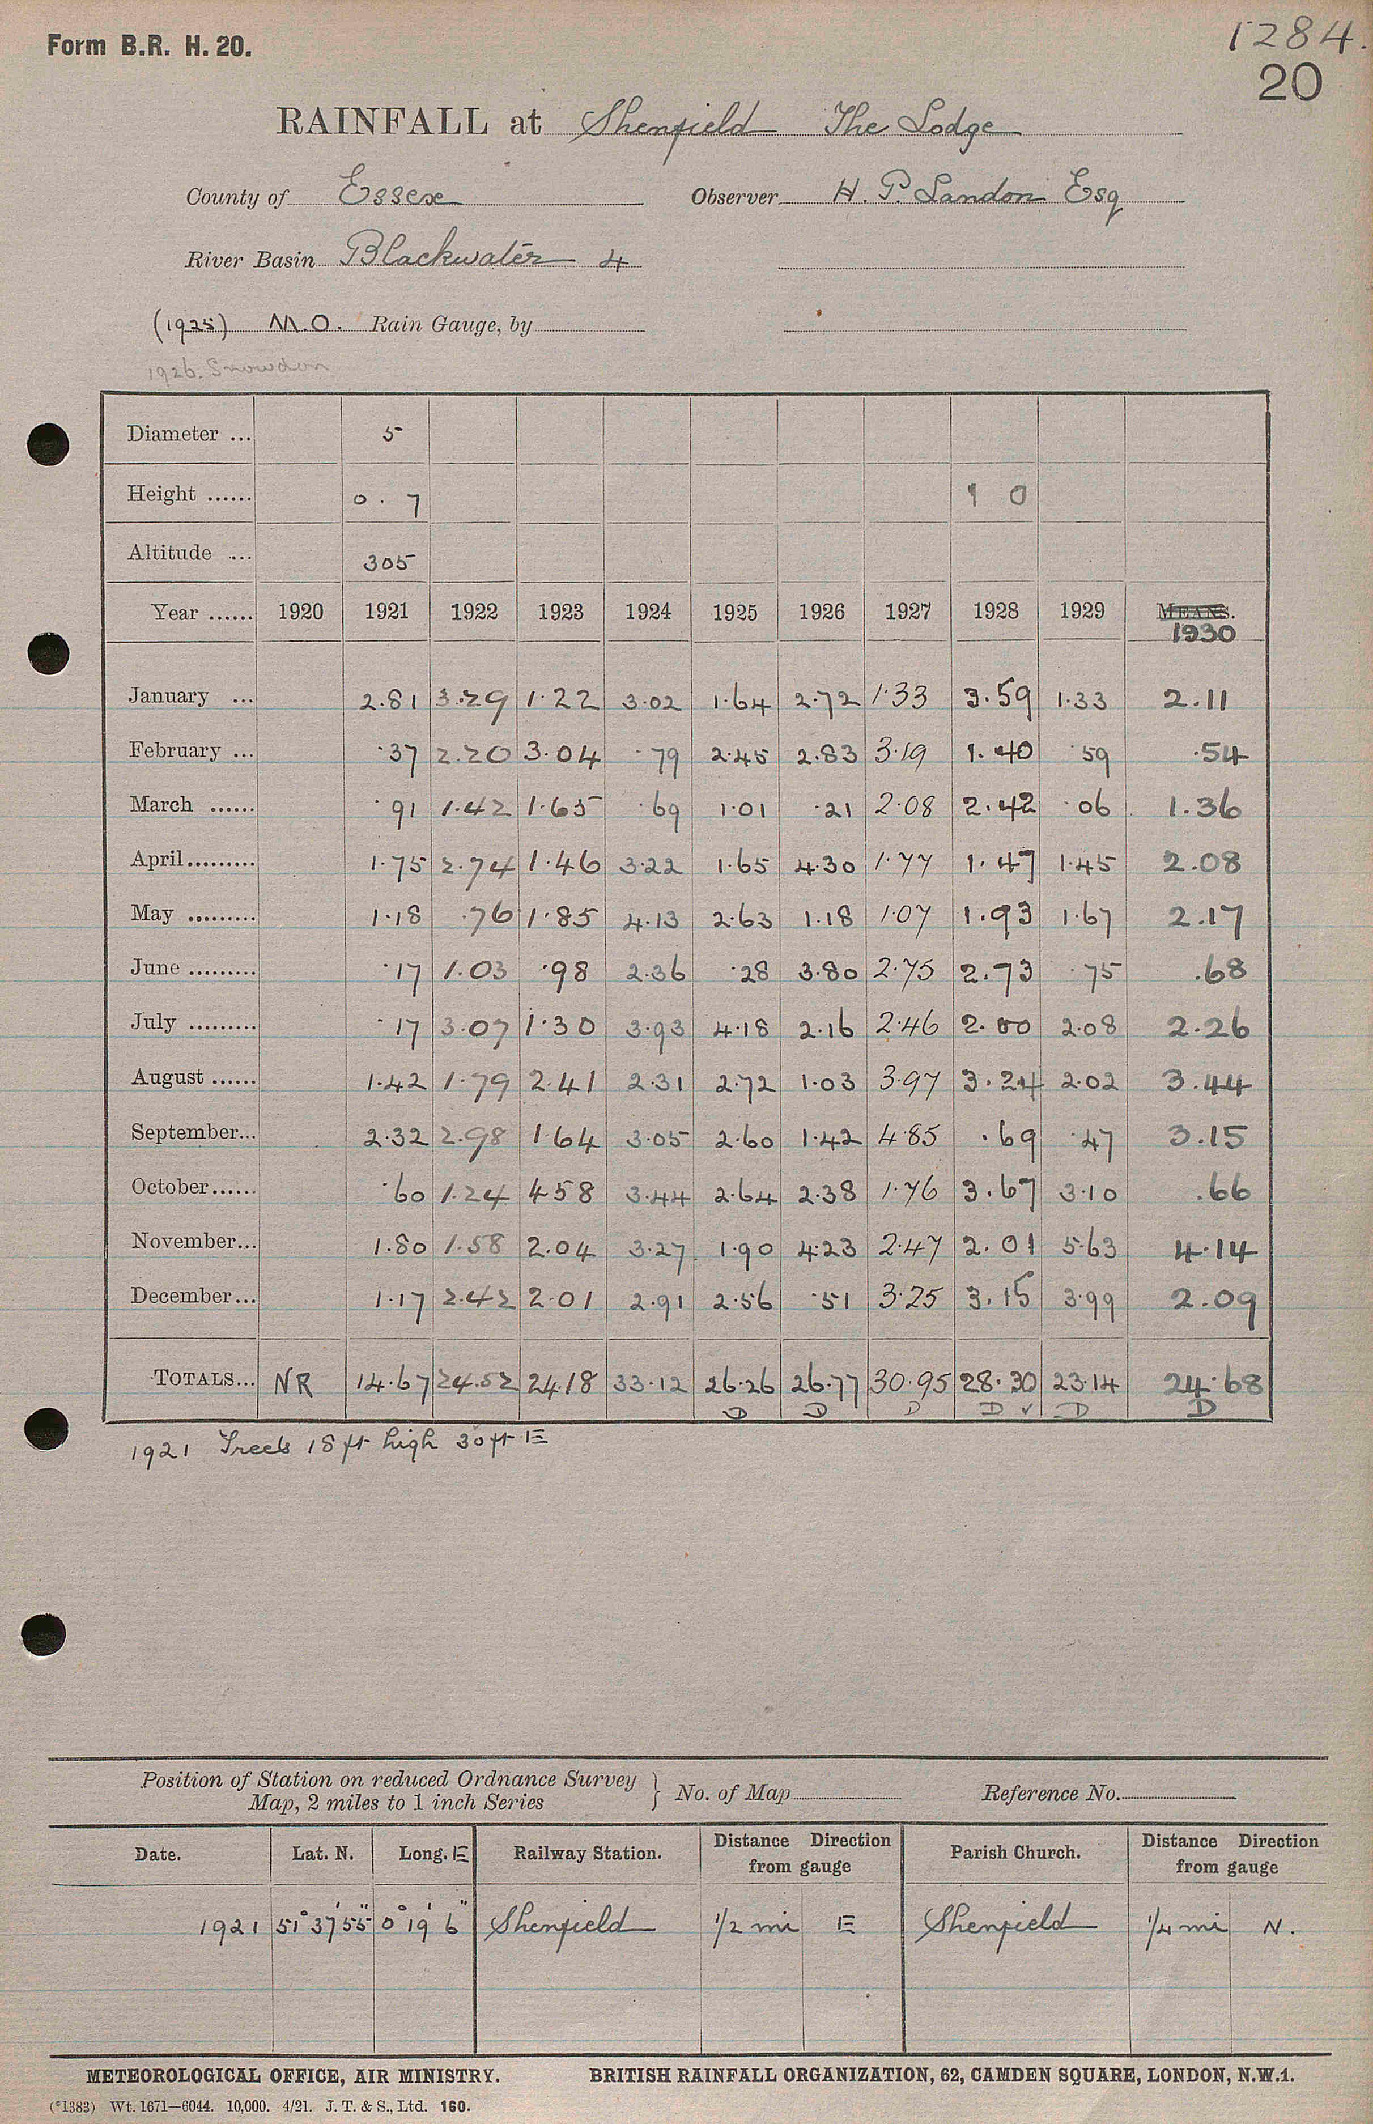 Form B.R. H. 20.
1284.
20
RAINFALL at Shenfield The Lodge
County of Essex Observer H. P. Landon Esq
River Basin Blackwater 4
(1925) M.O. Rain Gauge, by
1926. Snowdon
Diameter ... 5
Height ...... 0 . 7 1 0
Altitude .... 305
Year ...... 1920 1921 1922 1923 1924 1925 1926 1927 1928 1929 MEANS. 1930
January ... 2.81 3.29 1.22 3.02 1.64 2.72 1.33 3.59 1.33 2.11
February ... .37 2.20 3.04 .79 2.45 2.83 3.19 1.40 .59 .54
March ...... .91 1.42 1.65 .69 1.01 .21 2.08 2.42 .06 1.36
April......... 1.75 2.74 1.46 3.22 1.65 4.30 1.77 1.47 1.45 2.08
May ......... 1.18 .76 1.85 4.13 2.63 1.18 1.07 1.93 1.67 2.17
June ......... .17 1.03 .98 2.36 .28 3.80 2.75 2.73 .75 .68
July ......... .17 3.07 1.30 3.93 4.18 2.16 2.46 2.00 2.08 2.26
August ...... 1.42 1.79 2.41 2.31 2.72 1.03 3.97 3.24 2.02 3.44
September... 2.32 2.98 1 64 3.05 2.60 1.42 4.85 .69 .47 3.15
October...... .60 1.24 4 58 3.44 2.64 2.38 1.76 3.67 3.10 .66
November... 1.80 1.58 2.04 3.27 1.90 4.23 2.47 2.01 5.63 4.14
December... 1.17 2.42 2.01 2.91 2.56 .51 3.25 3.15 3.99 2.09
TOTALS... NR 14.67 24.52 24.18 33.12 26.26 26.77 30.95 28.30 23.14 24.68
D D D D v D D
1921 Trees 18 ft high 30 ft E
Position of Station on reduced Ordnance Survey
Map, 2 miles to 1 inch Series } No. of Map Reference No.
Date. Lat. N. Long. E Railway Station. Distance Direction from gauge Parish Church. Distance Direction from gauge
1921 51° 37' 55" 0° 19' 6" Shenfield 1/2 mi E Shenfield 1/4 mi N.
METEOROLOGICAL OFFICE, AIR MINISTRY. BRITISH RAINFALL ORGANIZATION, 62, CAMDEN SQUARE, LONDON, N.W.1.
(*1383) Wt. 1671—6044. 10,000. 4/21. J. T. & S., Ltd. 160.